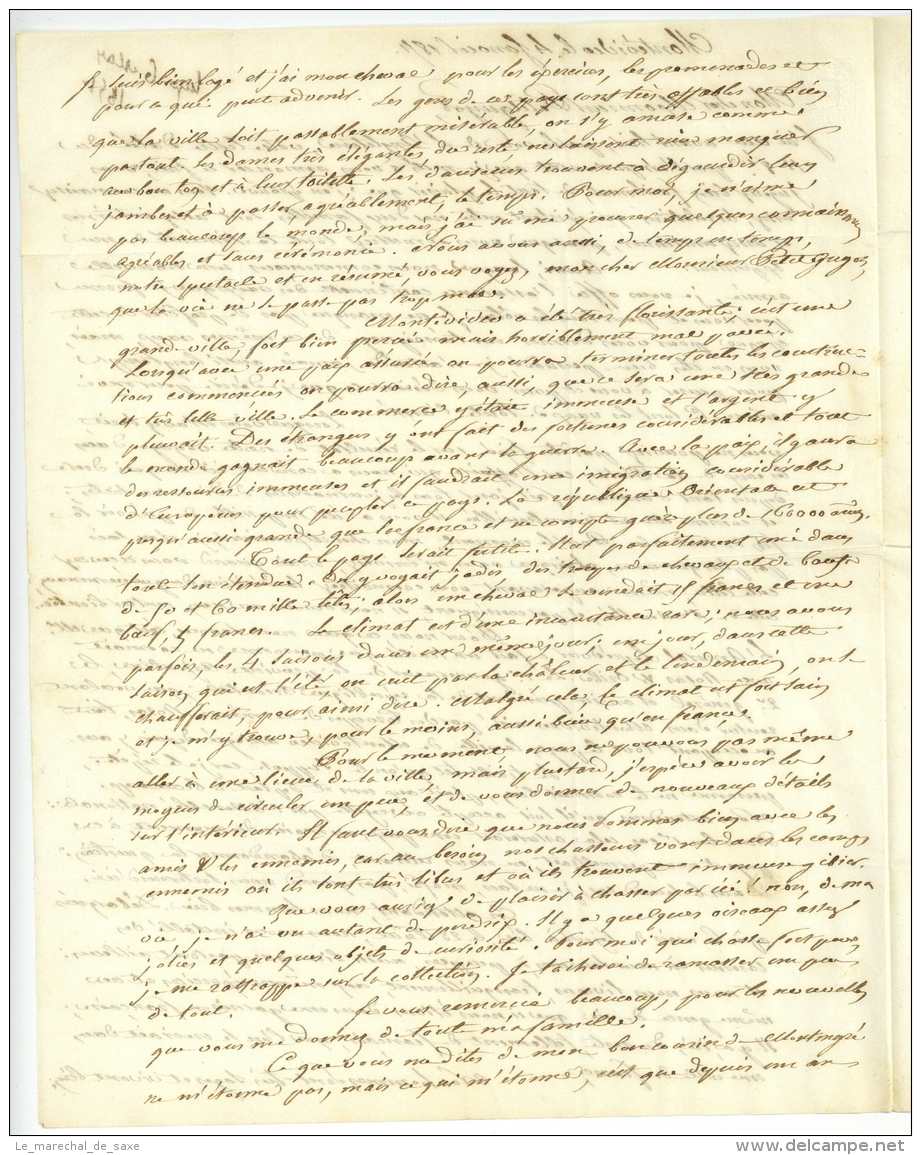 Je suis bien logé et j'ai mon cheval pour les exercices, les promenades et
pour ce qui peut advenir. Les gens de ce pays sont très affables et bien
que la ville soit passablement misérable, on s'y amuse comme
partout. Les dames très élégantes du reste ne laissent rien manquer
au bon ton et à leur toilette. Les danseurs trouvent à dégourdir leurs
jambes et à passer agréablement, le temps. Pour moi, je n'aime
pas beaucoup le monde, mais j'ai su me procurer quelques connaissances
agréables et sans cérémonie. Nous avons aussi, de temps en temps,
notre spectacle et en résumé, vous voyez, mon cher Monsieur
que la vie ne se passe pas trop mal.
Montévideo a été très florissante: c'est une
grande ville, fort bien percée mais horriblement mal pavée.
Lorsqu'avec une paix assurée on pourra terminer toutes les construc-
tions commencées on pourra dire, aussi, que ce sera une très grande
et très belle ville. Le commerce y était immense et l'argent y
pleuvait. Des étrangers y ont fait des fortunes considérables et tout
le monde gagnait beaucoup avant la guerre. Avec la paix il y aura
des ressources immenses et il faudrait une imigration considérable
d'Européens pour peupler ce pays. La république Orientale est
presqu'aussi grande que la france et ne compte qu'à plus de 160000 âmes.
Tout le pays serait fertile. Il est parfaitement uni dans
toute son étendue. On y voyait jadis, des troupes de chevaux et de bœufs
de 50 et 60 mille têtes; alors un cheval se vendait 5 francs et un
bœuf, 5 francs. Le climat est d'une inconstance rare; nous avons
parfois, les 4 saisons dans un même jour. un jour, dans cette
saison qui est l'été, on cuit par la chaleur et le lendemain, on se
chaufferait, pour ainsi dire. Malgré cela, le climat est fort sain
et je m'y trouve, pour le moins, aussi bien qu'en france.
Pour le moment nous ne pouvons pas même
aller à une lieue de la ville mais plustard, j'espère avoir les
moyens de circuler un peu, et de vous donner de nouveaux détails
sur l'intérieur. Il faut vous dire que nous sommes bien avec les
amis & les ennemis, car au besoin nos chasseurs vont dans les camps
ennemis où ils sont très libres et où ils trouvent immense gibier.
Que vous auriez de plaisir à chasser par ici! non, de ma
vie je n'ai vu autant de perdrix. Il y a quelques oiseaux assez
jolies et quelques objets de curiosité. Pour moi qui chasse fort peu,
je me rattrappe sur la collection. Je tâcherai de ramasser un peu
de tout. Je vous remercie beaucoup, pour les nouvelles
que vous me donnez de toute ma famille.
Ce que vous me dites de mon bon cousin de
ne m'étonne pas, mais ce qui m'étonne, c'est que depuis un an
Le_marechal_de_saxe
www.delcampe.net